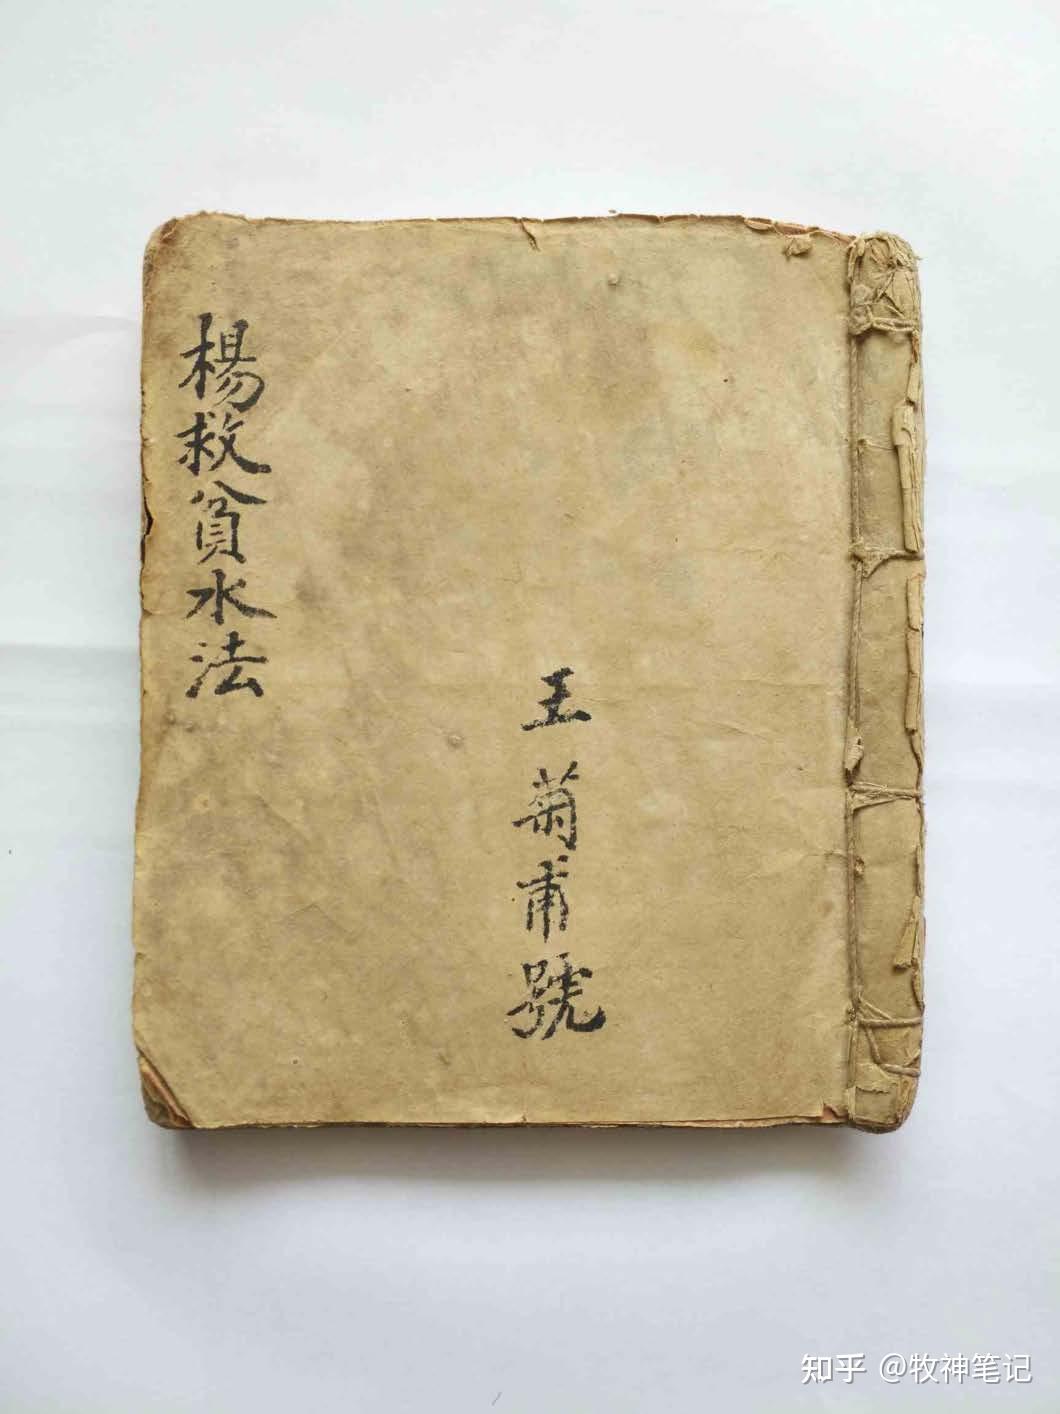 楊救貧水法
王菊甫號
知乎 @牧神笔记